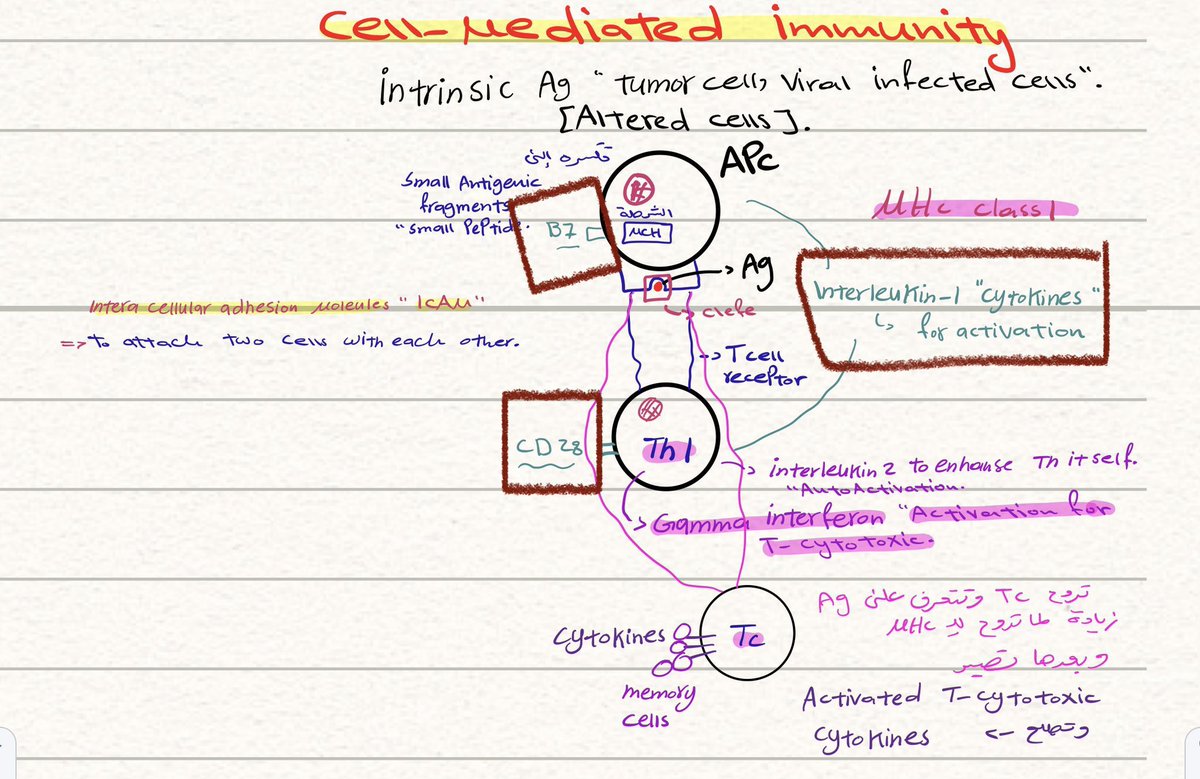 Cell-Mediated immunity
intrinsic Ag "tumor cell, viral infected cells".
[Altered cells].
APc
Small Antigenic
fragments
"small peptide".
B7
الشرطة
MCH
Ag
clefe
MHc class 1
Interleukin-1 "cytokines"
↳ for activation
Intera cellular adhesion molecules "ICAM"
=> to attach two cells with each other.
T cell
receptor
CD 28
Th1
interleukin 2 to enhanse Th itself.
"AutoActivation.
Gamma interferon "Activation for
T-cytotoxic.
Tc
Cytokines
memory
cells
تروح Tc وتتعرف على Ag
زيادة لما تروح لـ MHc
وبعدها تصير
Activated T-cytotoxic
cytokines <-